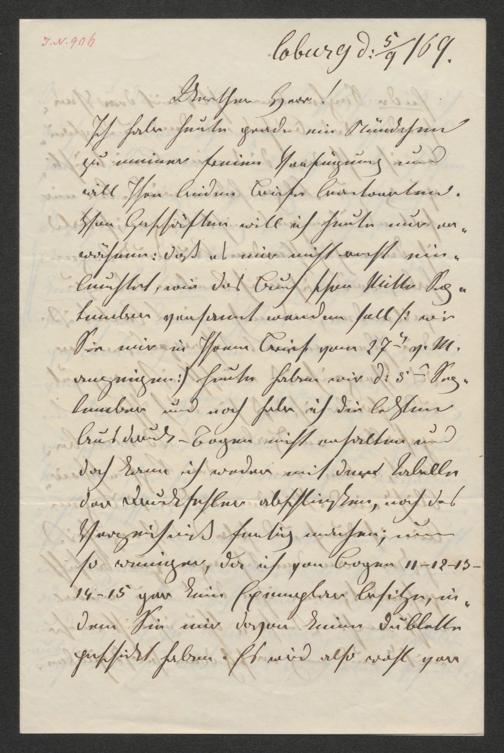 I.N. 906
Coburg d: 5/9 /69.
Werther Herr!
Ich habe heute grade ein Stündchen
zu meiner freien Verfügung und
will Ihre beiden Briefe beantworten.
Von Geschäften will ich heute nur er-
wähnen: daß es mir nicht recht ein-
leuchtet, wie das Buch schon Mitte Sep-
tember versandt werden soll /: wie
Sie mir in Ihrem Brief vom 27t v. M.
anzeigen :/ heute haben wir d: 5t Sep-
tember und noch habe ich die letzten
Ausdruck-Bogen nicht erhalten und
doch kann ich weder mit der Tabelle
der Druckfehler abschließen, noch das
Verzeichniß fertig machen; um
so weniger, da ich von Bogen 11-12-13-
14-15 gar kein Exemplar besitze, in-
dem Sie mir davon keine Dublette
geschickt haben. Es wird also wohl vor